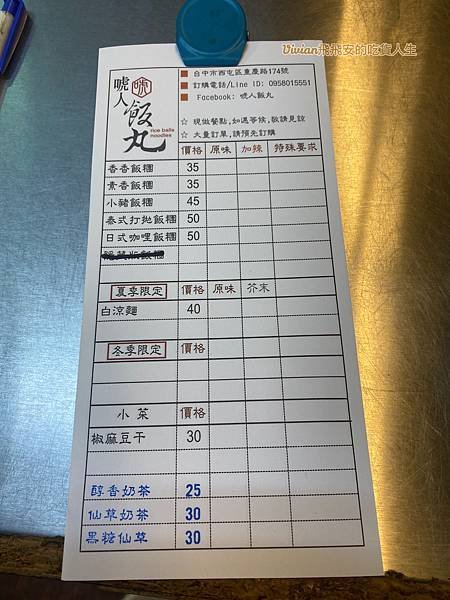 Vivian飛飛安的吃貨人生
唬人飯丸
rice balls
noodles
■ 台中市西屯區重慶路174號
■ 訂購電話/Line ID: 0958015551
■ Facebook: 唬人飯丸
☆ 現做餐點,如遇等候,敬請見諒
☆ 大量訂單,請預先訂購
價格 原味 加辣 特殊要求
香香飯糰 35
素香飯糰 35
小豬飯糰 45
泰式打拋飯糰 50
日式咖哩飯糰 50
夏季限定 價格 原味 芥末
白涼麵 40
冬季限定 價格
小菜 價格
椒麻豆干 30
醇香奶茶 25
仙草奶茶 30
黑糖仙草 30